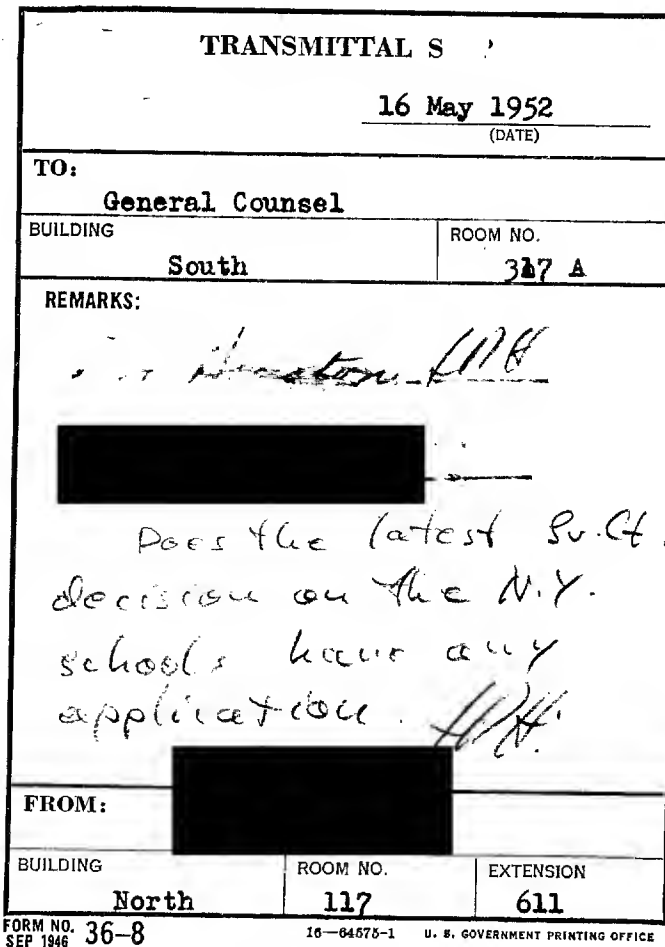 TRANSMITTAL S
16 May 1952
(DATE)
TO:
General Counsel
BUILDING
ROOM NO.
South
317 A
REMARKS:
Houston LRH
Does the latest Su. Ct.
decision on the N.Y.
schools have any
application.
FROM:
BUILDING
ROOM NO.
EXTENSION
North
117
611
FORM NO.
SEP 1946 36-8
16—64575-1 U. S. GOVERNMENT PRINTING OFFICE